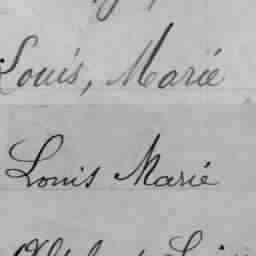 Louis, Marie
Louis Marie